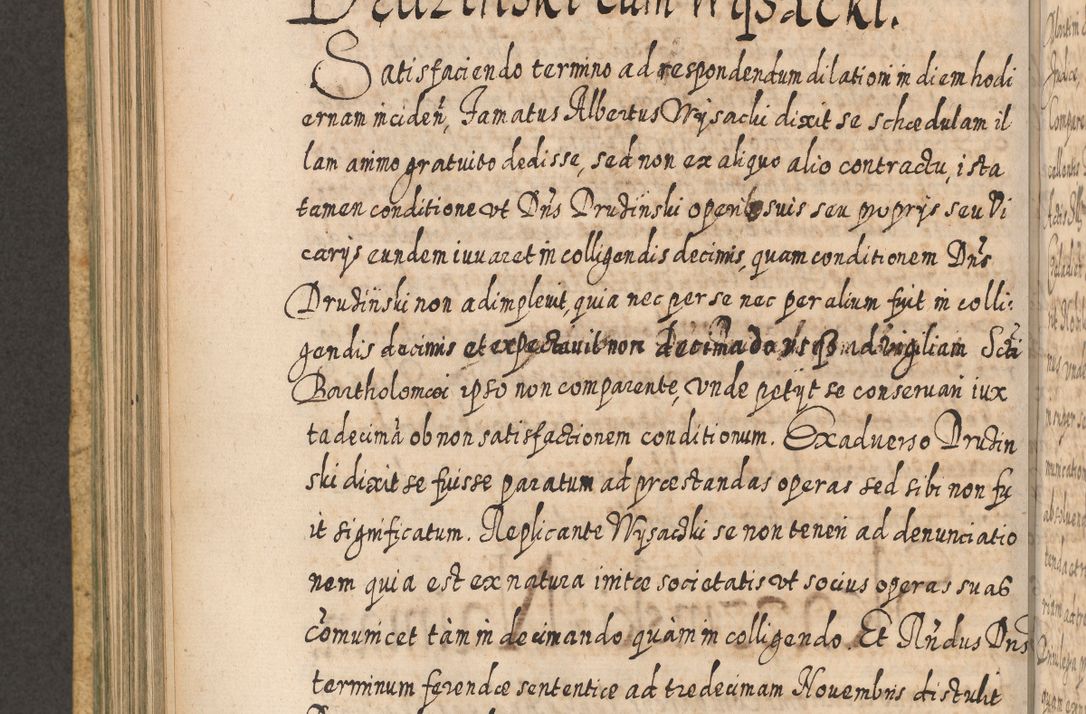 Druzinski cum Wysacki.
Satisfaciendo termino ad respondendum dilationi in diem hodi
ernam inciden, Famatus Albertus Wysacki dixit se schœdulam il
lam animo gratuito dedisse, sed non ex aliquo alio contractu, ista
tamen conditione vt Dns Druzinski operib suis seu proprys seu Vi
carys eundem iuuaret in colligendis decimis, quam conditionem Dns
Druzinski non adimpleuit, quia nec per se nec per alium fuit in colli:
gendis decimis et expectauit non ad vigiliam Scti
Bartholomœi ipso non comparente, vnde petyt se conseruari iux
ta decimã ob non satisfactionem conditionum. Ex aduerso Druzin
ski dixit se fuisse paratum ad præstandas operas sed sibi non fu
it significatum. Replicante Wysacki se non teneri ad denunciatio
nem quia est ex natura initæ societatis vt socius operas suas
cõmunicet tàm in decimando quàm in colligendo. Et Rndus Dns
terminum ferendæ sententiæ ad tredecimam Nouembris distulit